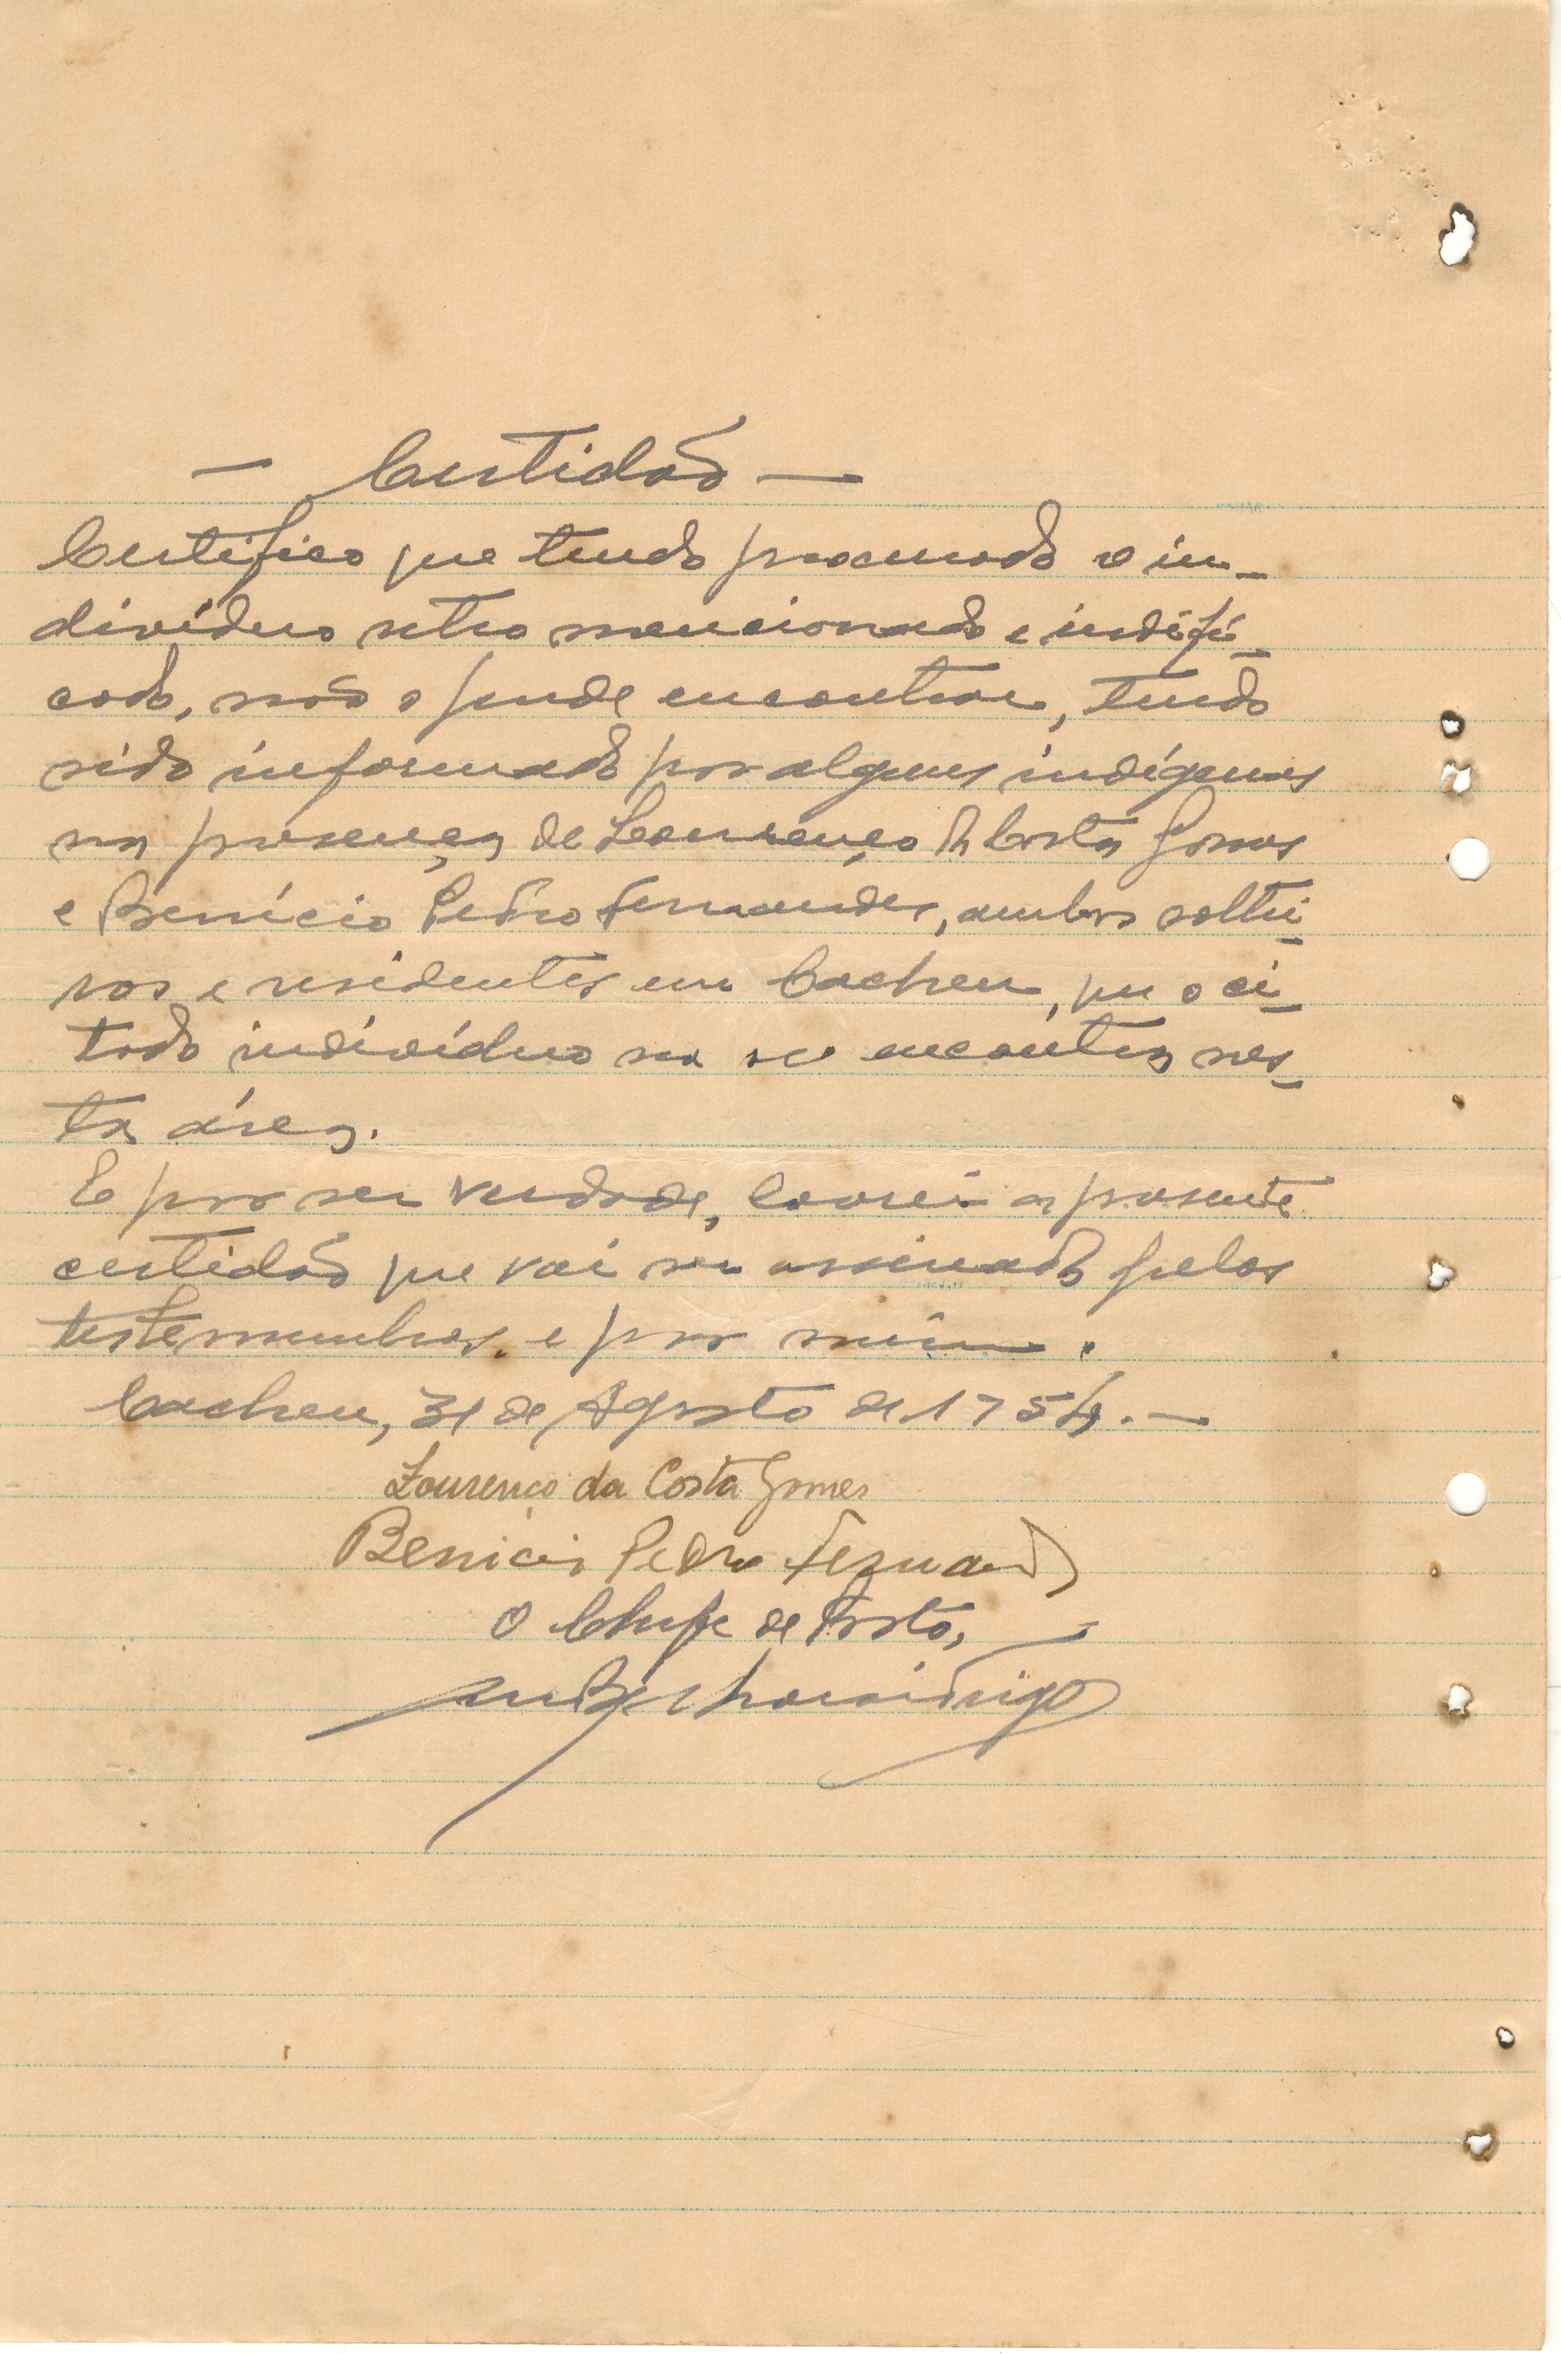 — Certidão —
Certifico que tendo procurado o in-
divíduo retro mencionado e indifi-
cado, não o pude encontrar, tendo
sido informado por alguns indígenas
na presença de Lourenço da Costa Gomes
e Benício Pedro Fernandes, ambos soltei-
ros e residentes em Cacheu, que o ci-
tado indivíduo não se encontra nes-
ta área.
E por ser verdade, lavrei a presente
certidão que vai ser assinada pelas
testemunhas e por mim.
Cacheu, 31 de Agosto de 1954.—
Lourenço da Costa Gomes
Benício Pedro Fernandes
O Chefe de Posto,